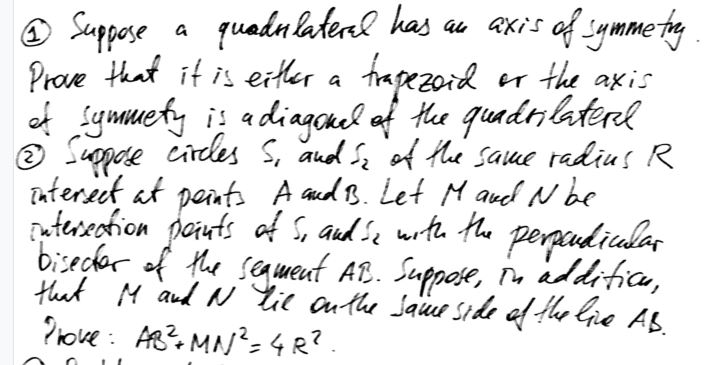 ① Suppose a quadrilateral has an axis of symmetry.
Prove that it is either a trapezoid or the axis
of symmety is a diagonal of the quadrilateral
② Suppose circles S₁ and S₂ of the same radius R
intersect at points A and B. Let M and N be
intersection points of S₁ and S₂ with the perpendicular
bisector of the segment AB. Suppose, in addition,
that M and N lie on the same side of the line AB.
Prove: AB² + MN² = 4R².